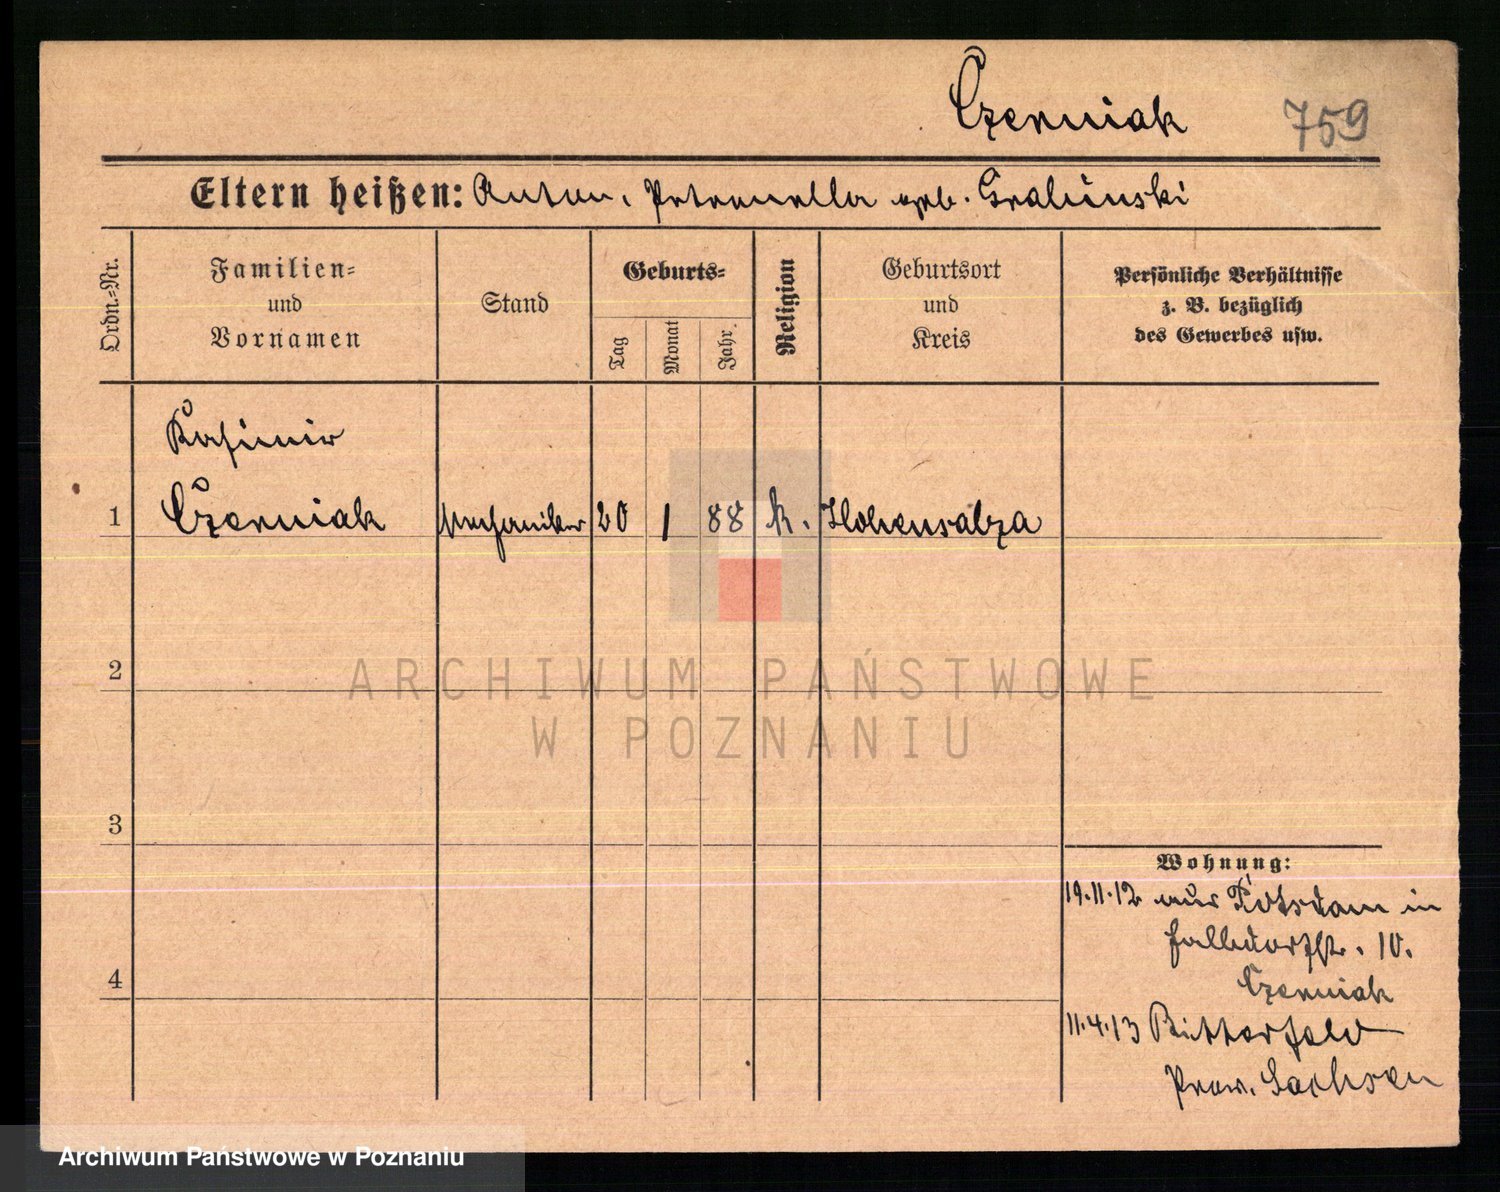 Czerniak 759
Eltern heißen: Anton, Petronella geb. Gralinski
Ordn.-Nr.
Familien-
und
Vornamen
Stand
Geburts-
Tag
Monat
Jahr
Religion
Geburtsort
und
Kreis
Persönliche Verhältnisse
z. B. bezüglich
des Gewerbes usw.
Kasimir
1 Czerniak Mechaniker 20 1 88 k. Hohensalza
2
ARCHIWUM PAŃSTWOWE
W POZNANIU
3
Wohnung:
19.11.12 aus Potsdam in
10.
4
Czerniak
11.4.13 Bitterfeld
Prov. Sachsen
Archiwum Państwowe w Poznaniu